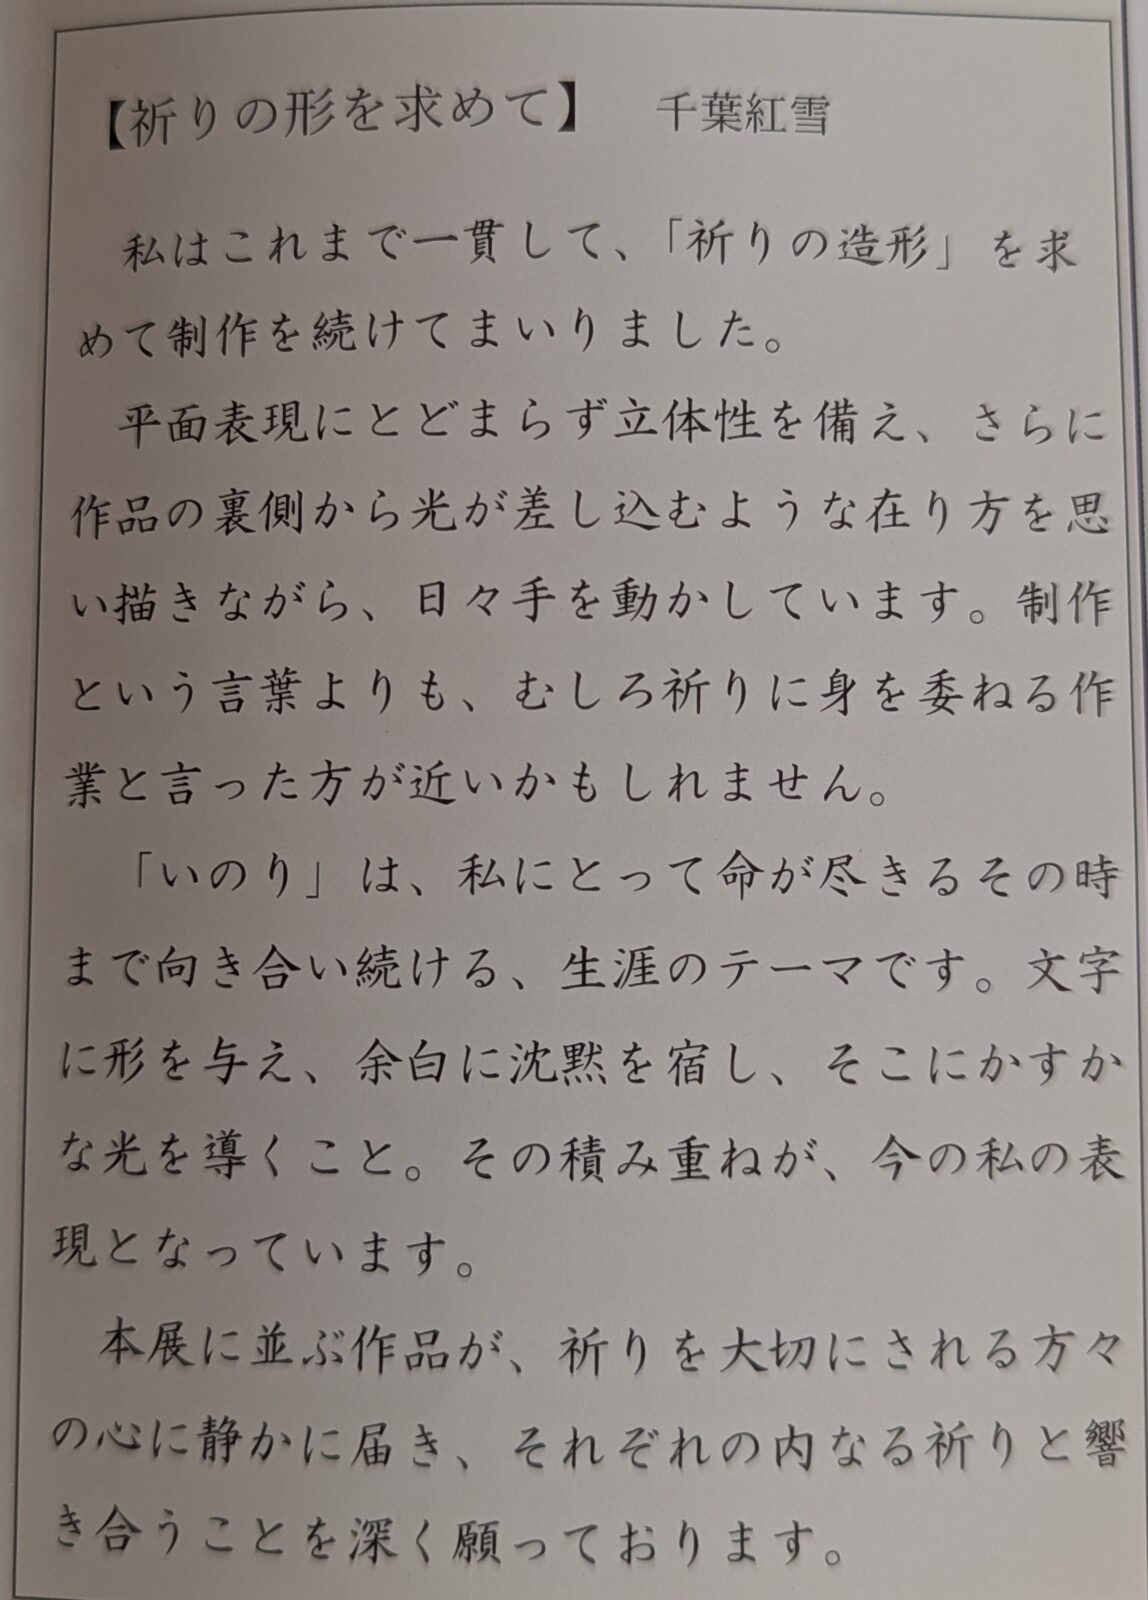 【祈りの形を求めて】　千葉紅雪
私はこれまで一貫して、「祈りの造形」を求
めて制作を続けてまいりました。
平面表現にとどまらず立体性を備え、さらに
作品の裏側から光が差し込むような在り方を思
い描きながら、日々手を動かしています。制作
という言葉よりも、むしろ祈りに身を委ねる作
業と言った方が近いかもしれません。
「いのり」は、私にとって命が尽きるその時
まで向き合い続ける、生涯のテーマです。文字
に形を与え、余白に沈黙を宿し、そこにかすか
な光を導くこと。その積み重ねが、今の私の表
現となっています。
本展に並ぶ作品が、祈りを大切にされる方々
の心に静かに届き、それぞれの内なる祈りと響
き合うことを深く願っております。